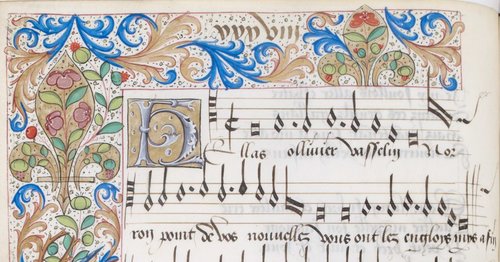 xxxviii
Hellas ollivier vasselin Nor
ron point de vos nouvelles vous ont lez engloys mys a fin